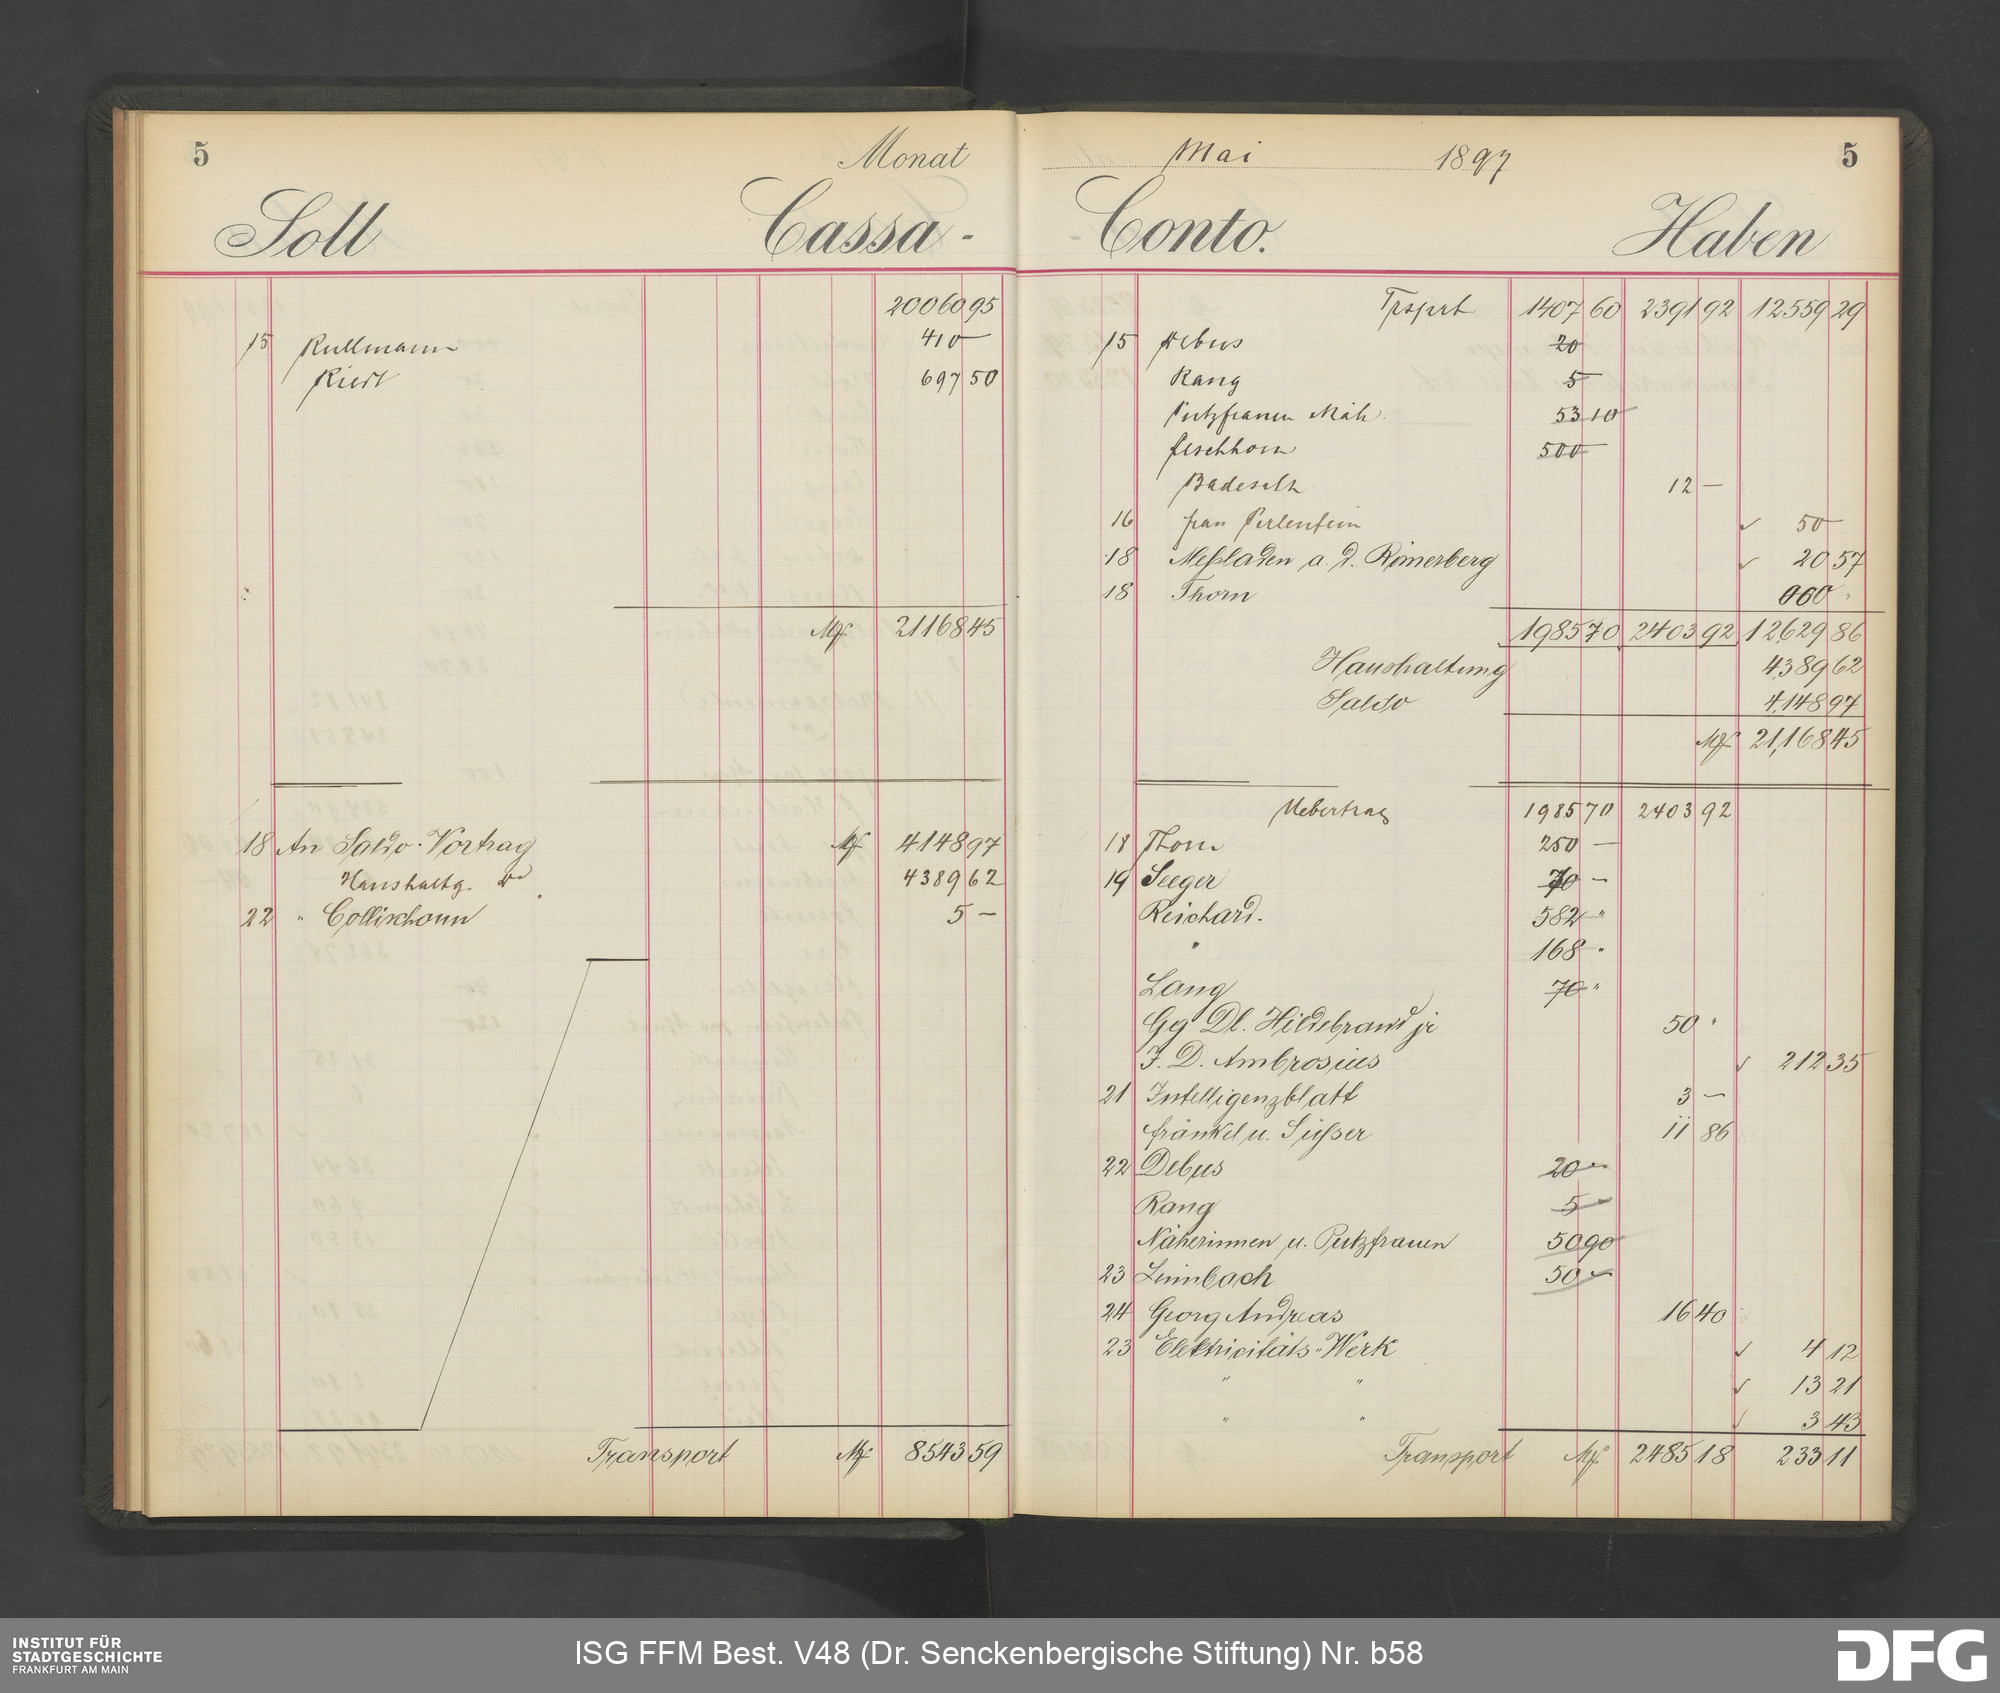 5 Monat
Soll Cassa-
20060 95
15 Rullmann 410 —
Riedl 697 50
Mk 21168 45
18 An Saldo-Vortrag Mk 4148 97
Haushaltg. do 4389 62
22 " Collischonn 5 —
Transport Mk 8543 59
Mai 1897 5
Conto. Haben
Trsprt 1407 60 2391 92 12559 29
15 Debus 20
Rang 5 —
Putzfrauen Näh. 53 10
Peschhorn 500 —
Badesalz 12 —
16 frau Perlenfein ✓ 50 —
18 Meßladen a. d. Römerberg ✓ 20 57
18 Thorn 000 "
1985 70 2403 92 12629 86
Haushaltung 4389 62
Saldo 4148 97
Mk 21,168 45
Uebertrag 1985 70 2403 92
18 Thorn 250 —
19 Seeger 70 —
Reichard. 582 "
" 168 "
Lang 70 "
Gg Dl. Hildebrand jr 50 "
J. D. Ambrosius ✓ 212 35
21 Intelligenzblatt 3 —
Fränkel u. Süsser 11 86
22 Debus 20 —
Rang 5 —
Näherinnen u. Putzfrauen 50 90
23 Limbach 50 —
24 Georg Andreas 16 40
23 Elektricitäts-Werk ✓ 4 12
" " ✓ 13 21
" " ✓ 3 43
Transport Mk 2485 18 233 11
INSTITUT FÜR
STADTGESCHICHTE
FRANKFURT AM MAIN
ISG FFM Best. V48 (Dr. Senckenbergische Stiftung) Nr. b58
DFG